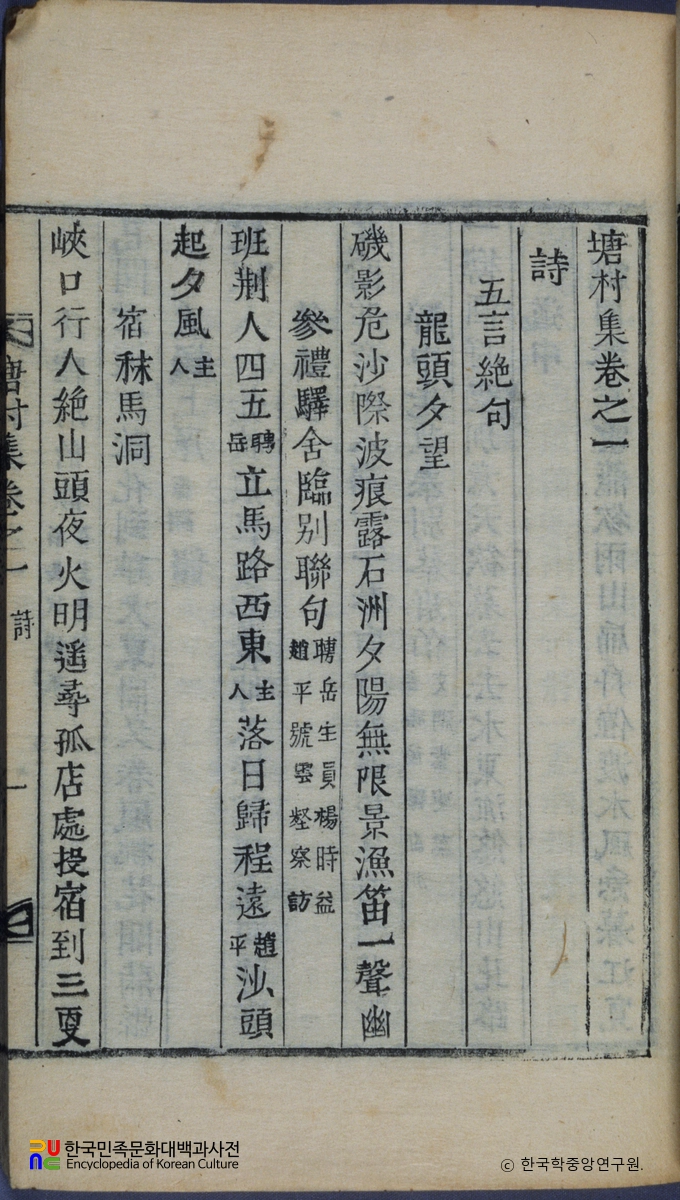 塘村集卷之一
詩
五言絶句
龍頭夕望
磯影危沙際波痕露石洲夕陽無限景漁笛一聲幽
參禮驛舍臨別聯句 聘岳生員楊時益 趙平號雲壑察訪
班荆人四五 聘岳 立馬路西東 主人 落日歸程遠 趙平 沙頭
起夕風 主人
宿秣馬洞
峽口行人絶山頭夜火明遥尋孤店處投宿到三更
塘村集卷之一 詩 一
한국민족문화대백과사전
Encyclopedia of Korean Culture
© 한국학중앙연구원.